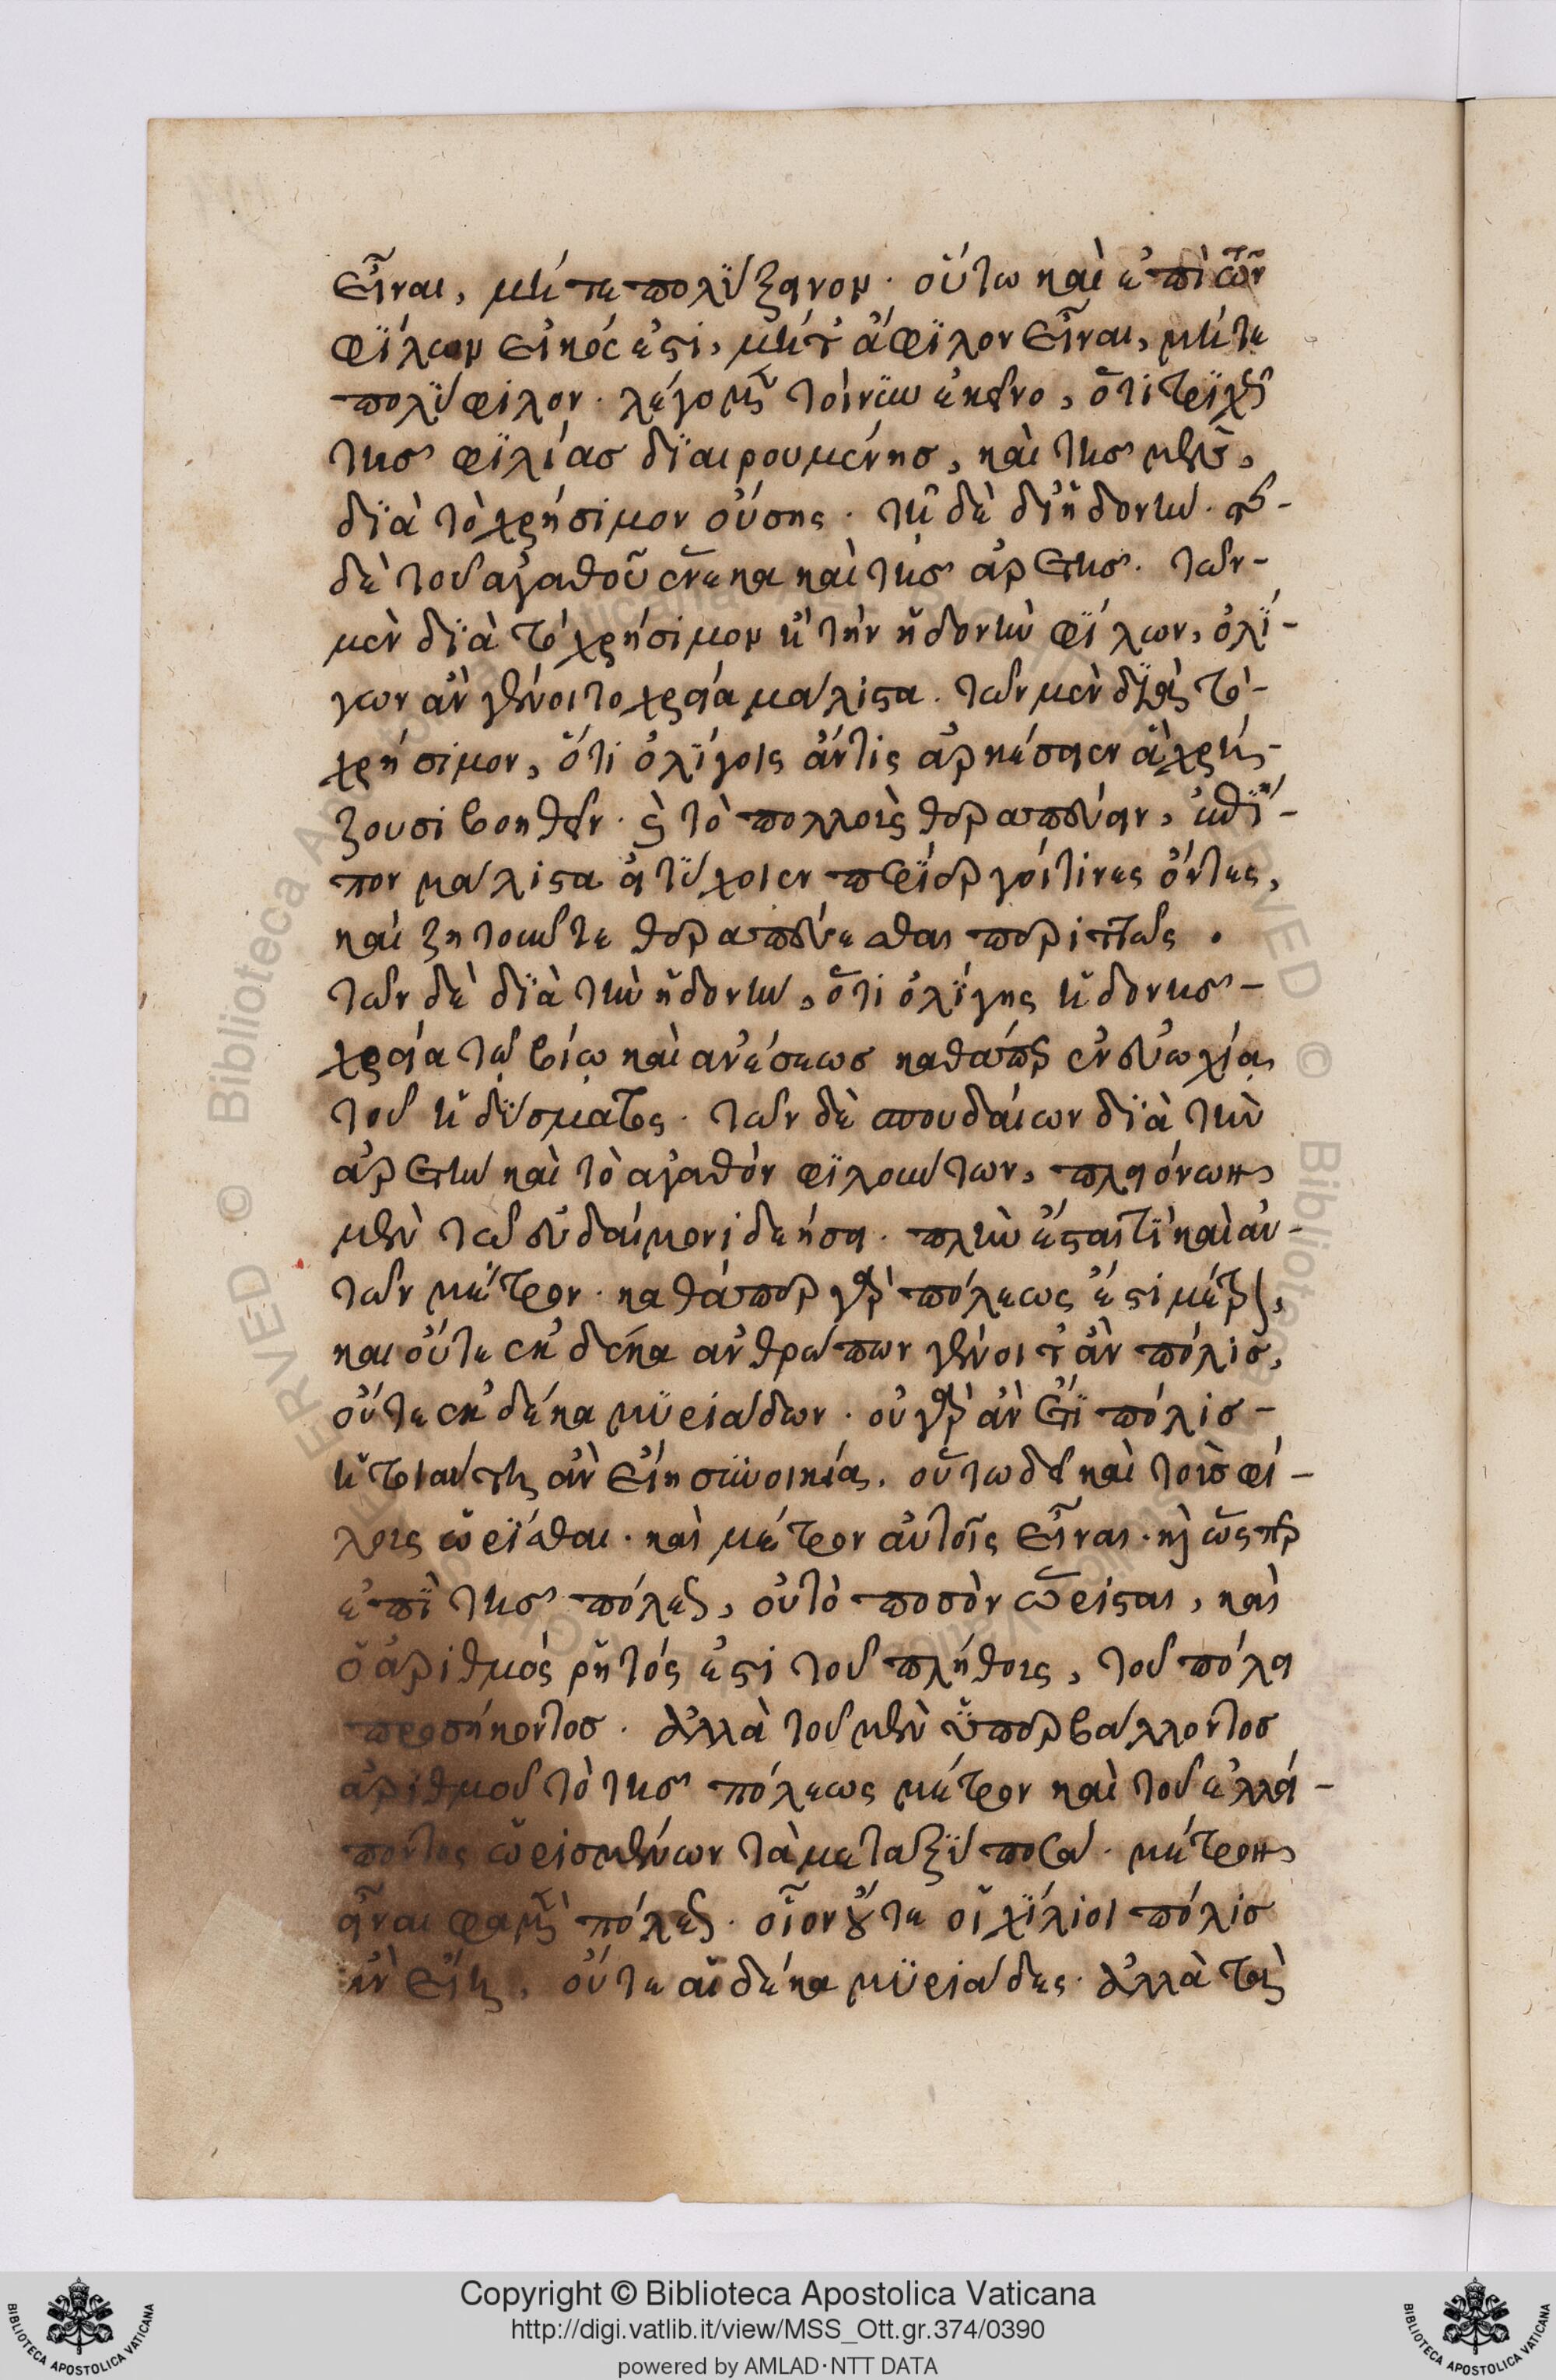 εἶναι, μήτε πολύξεινον· οὕτω καὶ ἐπὶ τῶν
φίλων εἰκός ἐστι, μήτ' ἄφιλον εἶναι, μήτε
πολύφιλον· λέγομεν τοίνυν ἐκεῖνο, ὅτι τριχῆ
τῆς φιλίας διαιρουμένης, καὶ τῆς μὲν,
διὰ τὸ χρήσιμον οὔσης· τῆ δὲ δι' ἡδονὴν· τῆς-
δὲ τοῦ ἀγαθοῦ ἕνεκα καὶ τῆς ἀρετῆς· τῶν-
μὲν διὰ τὸ χρήσιμον ἢ τὴν ἡδονὴν φίλων, ὀλί-
γων ἂν γένοιτο χρεία μάλιστα· τῶν μὲν διὰ τὸ-
χρήσιμον, ὅτι ὀλίγοις ἄν τις ἀρκέσειεν ἃ χρήι-
ζουσι βοηθεῖν· καὶ τὸ πολλοῖς θεραπεύειν, ἐπί-
πον μάλιστα εἰ τύχοιεν περίεργοί τινες ὄντες,
καὶ ζητοῦντε θεραπεύεσθαι περιττῶς.
τῶν δὲ διὰ τὴν ἡδονὴν, ὅτι ὀλίγης ἡδονῆς-
χρεία τῷ βίῳ καὶ ἀνέσεως καθάπερ ἐν εὐωχίᾳ
τοῦ ἡδύσματος· τῶν δὲ σπουδαίων διὰ τὴν
ἀρετὴν καὶ τὸ ἀγαθὸν φιλούντων, πλειόνων
μὲν τῷ εὐδαίμονι δεήσει· πλὴν ἔσται τὶ καὶ αὐ-
τῶν μέτρον· καθάπερ γὰρ πόλεως ἐστι μέτρον,
καὶ οὔτε ἐκ δέκα ἀνθρώπων γένοιτ' ἂν πόλις,
οὔτε ἐκ δέκα μυριάδων· οὐ γὰρ ἂν ἔτι πόλις-
ἡ τοιαύτη ἂν εἴη συνοικία, οὕτω δεῖ καὶ τοῖς φί-
λοις ὡρίσθαι· καὶ μέτρον αὐτοῖς εἶναι· καὶ ὥσπερ
ἐπὶ τῆς πόλεως, οὐ τὸ ποσὸν ὥρισται, καὶ
ὁ ἀριθμὸς ῥητός ἐστι τοῦ πλήθους, τοῦ πόλει
προσήκοντος· ἀλλὰ τοῦ μὲν ὑπερβάλλοντος
ἀριθμοῦ τὸ τῆς πόλεως μέτρον καὶ τοῦ ἐλλεί-
ποντος ὡρισμένων τὰ μεταξὺ ποσὰ· μέτρον
εἶναι φαμὲν πόλεως· οἷον οὔτε οἱ χίλιοι πόλις
ἂν εἴη, οὔτε αἱ δέκα μυριάδες· ἀλλὰ τοῖς
Copyright © Biblioteca Apostolica Vaticana
http://digi.vatlib.it/view/MSS_Ott.gr.374/0390
powered by AMLAD·NTT DATA